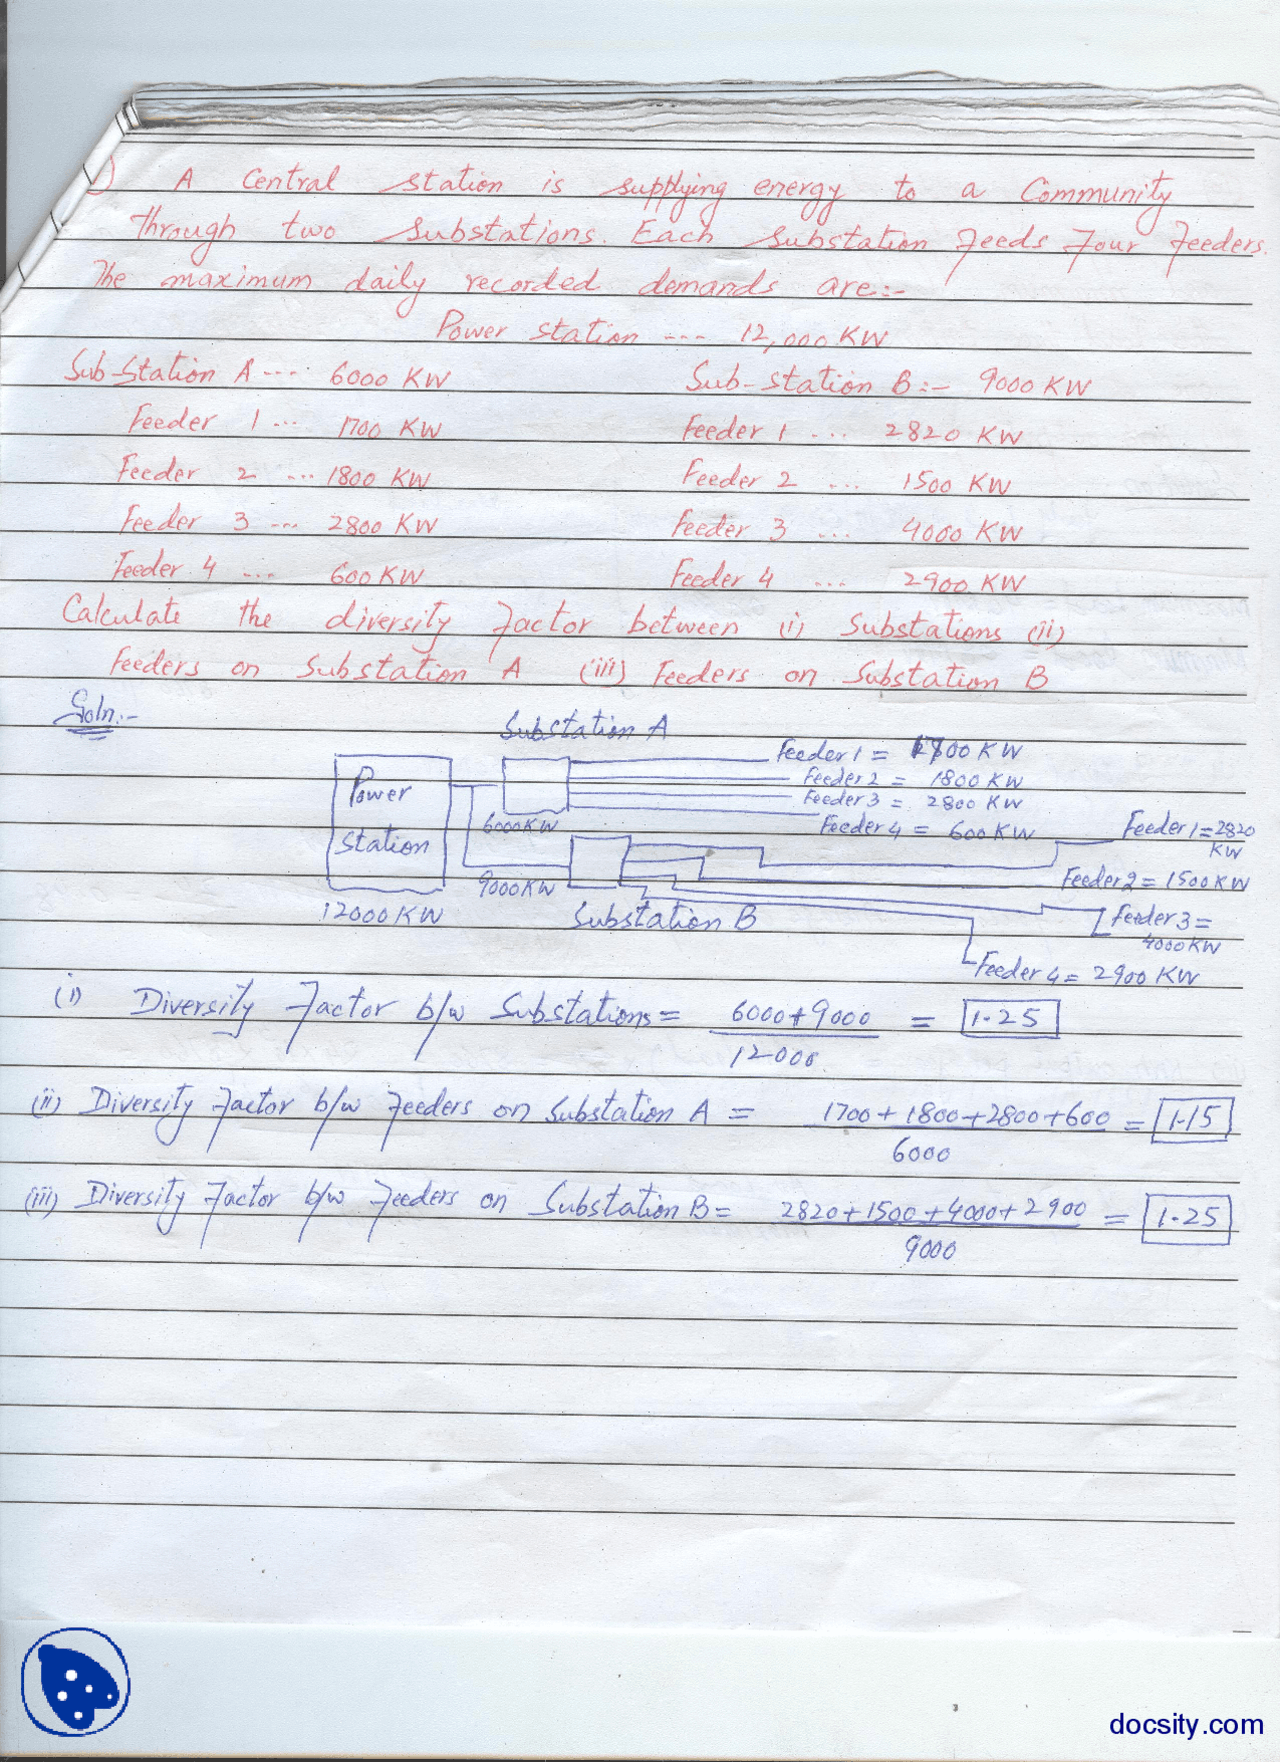 ) A Central station is supplying energy to a Community
through two Substations. Each Substation feeds Four feeders.
The maximum daily recorded demands are:-
Power station --- 12,000 KW
Sub-Station A .... 6000 KW Sub-station B:- 9000 KW
Feeder 1 ... 1700 KW Feeder 1 ... 2820 KW
Feeder 2 ... 1800 KW Feeder 2 ... 1500 KW
Feeder 3 ... 2800 KW Feeder 3 ... 4000 KW
Feeder 4 ... 600 KW Feeder 4 ... 2900 KW
Calculate the diversity factor between (i) Substations (ii)
Feeders on Substation A (iii) Feeders on Substation B
Soln:-
Substation A
Feeder 1 = 1700 KW
Power Station
Feeder 2 = 1800 KW
Feeder 3 = 2800 KW
6000KW
Feeder 4 = 600 KW
Feeder 1 = 2820 KW
9000KW
Feeder 2 = 1500 KW
12000 KW
Substation B
Feeder 3 = 4000KW
Feeder 4 = 2900 KW
(i) Diversity Factor b/w Substations = 6000+9000 / 12000 = 1.25
(ii) Diversity Factor b/w Feeders on Substation A = 1700+1800+2800+600 / 6000 = 1.15
(iii) Diversity Factor b/w Feeders on Substation B = 2820+1500+4000+2900 / 9000 = 1.25
docsity.com